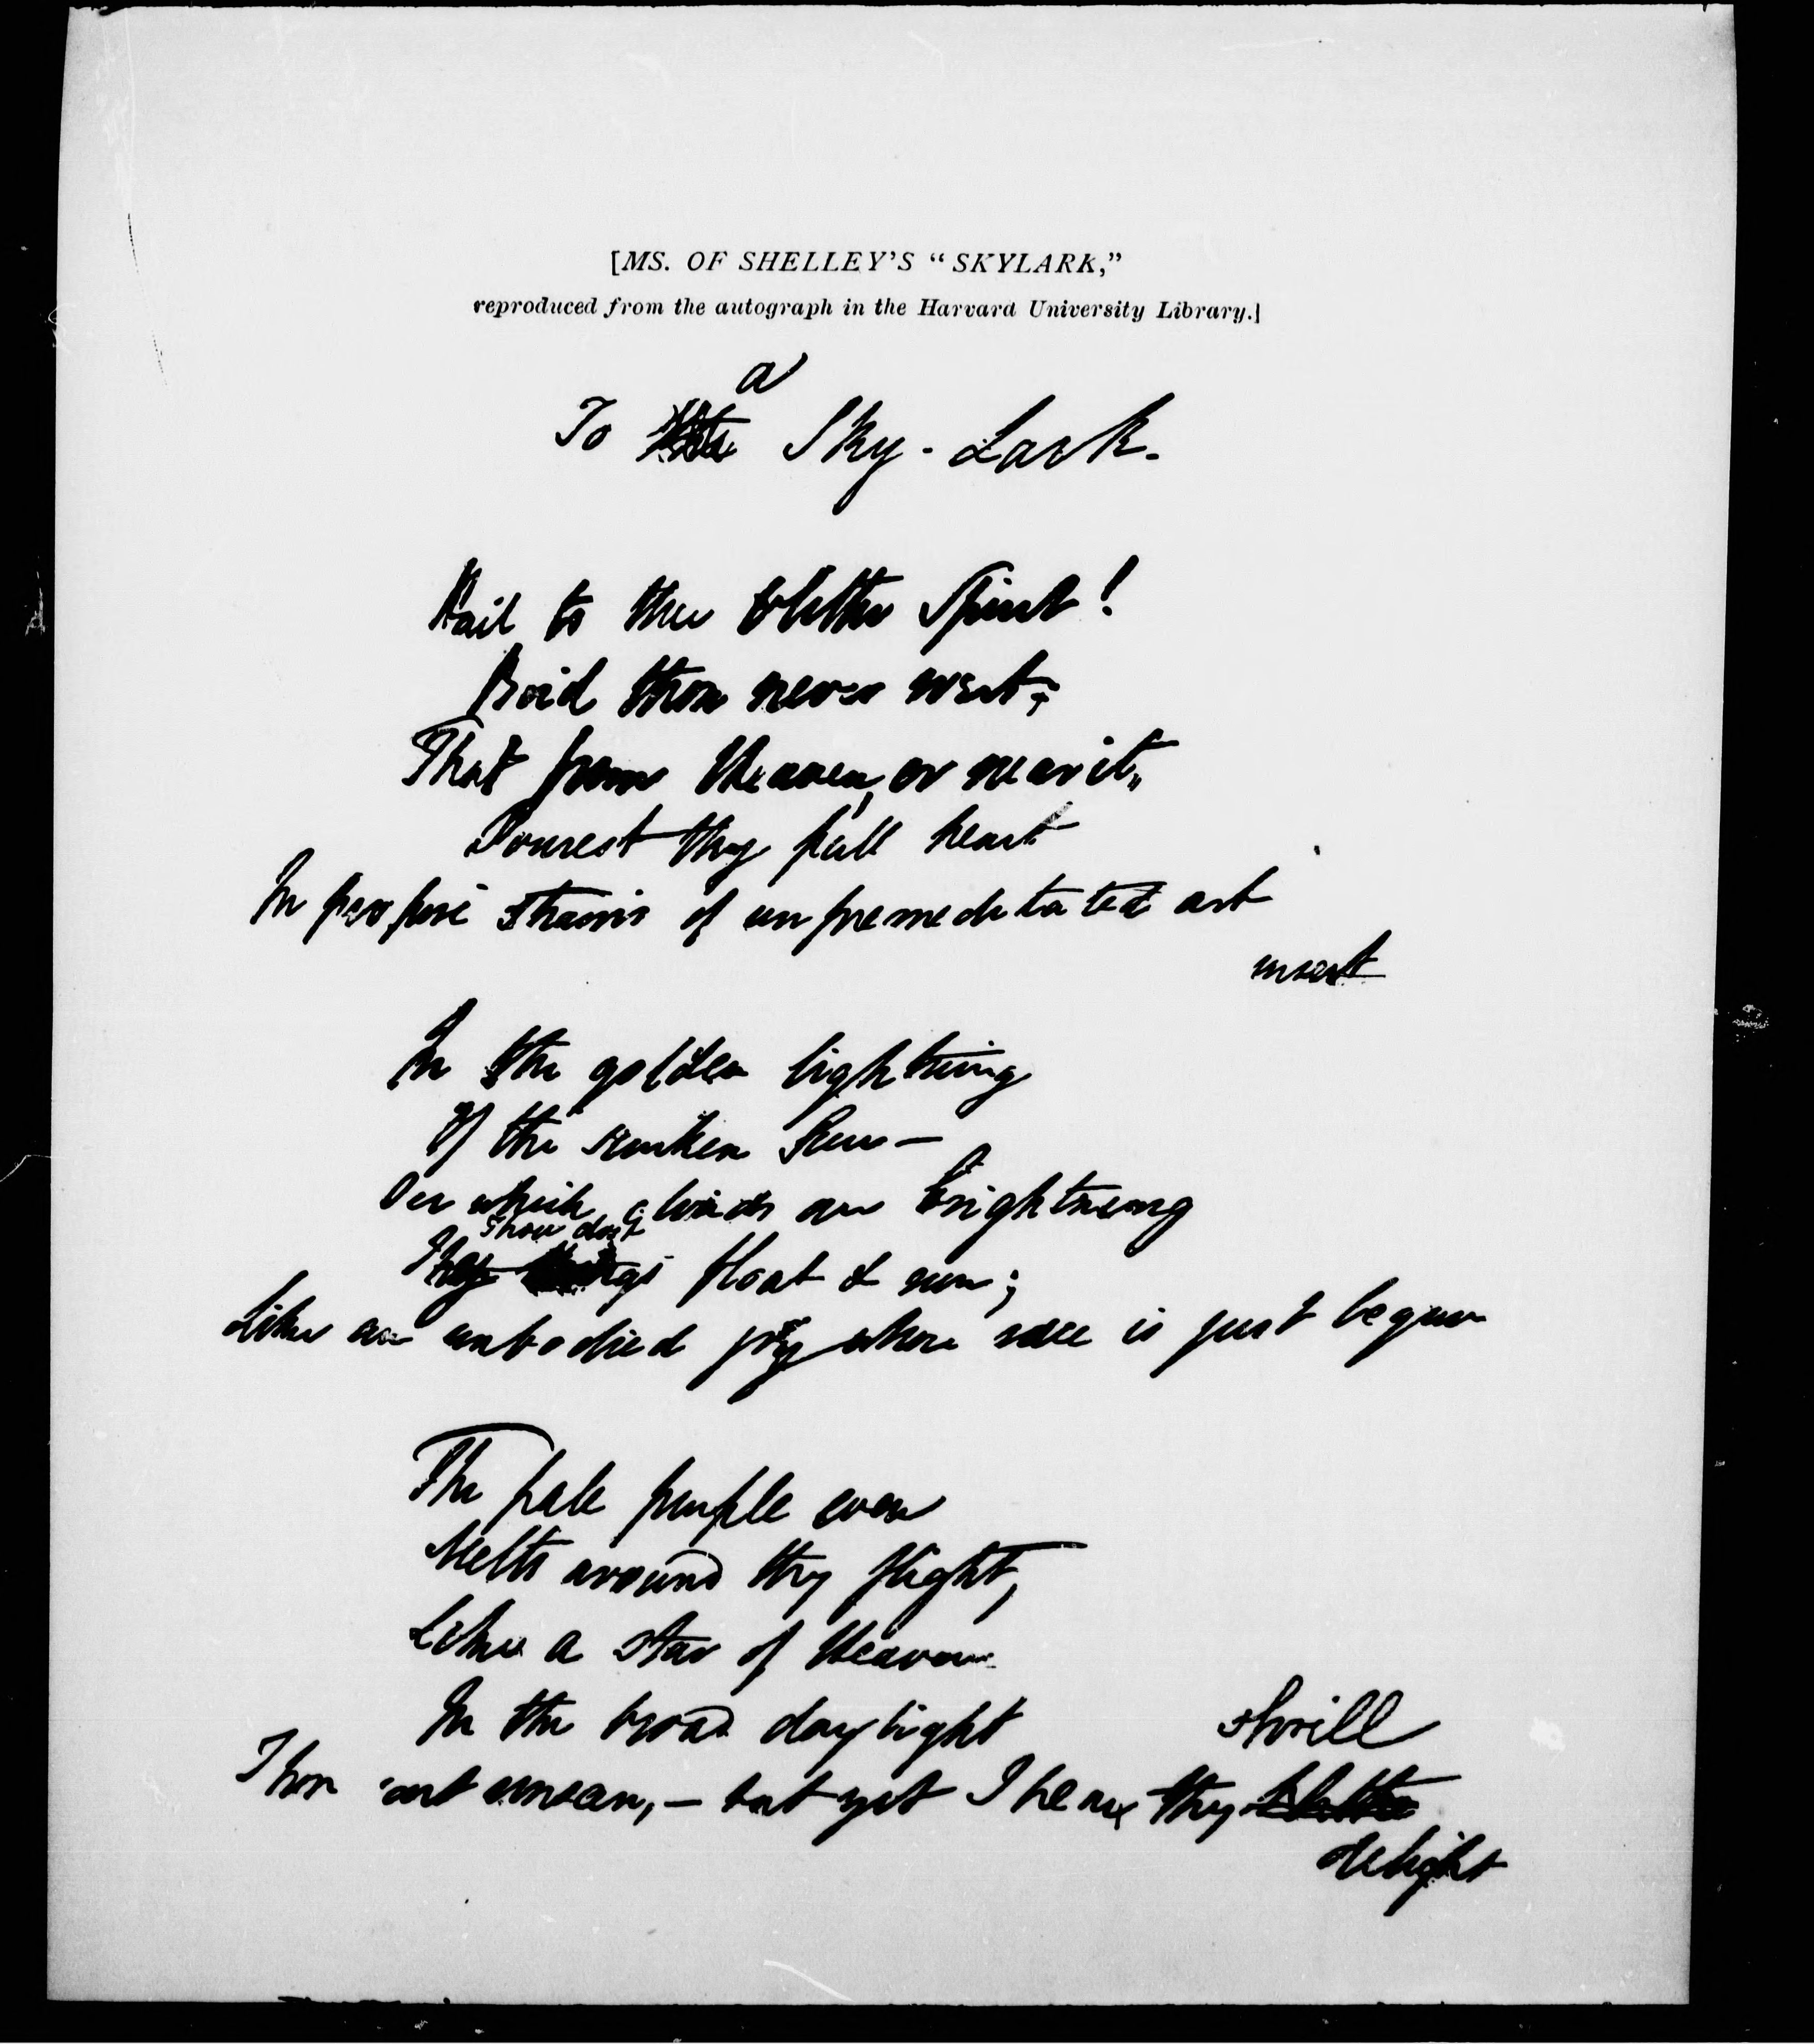 [MS. OF SHELLEY'S “SKYLARK,”
reproduced from the autograph in the Harvard University Library.]
a
To the Sky-Lark.
Hail to thee blithe Spirit!
Bird thou never wert,
That from Heaven, or near it,
Pourest thy full heart
In profuse strains of unpremeditated art
insert
In the golden lightning
Of the sunken Sun —
Oer which clouds are brightning
Thou dost
float & run;
Like an unbodied joy whose race is just begun
The pale purple even
Melts around thy flight,
Like a star of Heaven
In the broad daylight
shrill
Thou art unseen, — but yet I hear thy blithe
delight